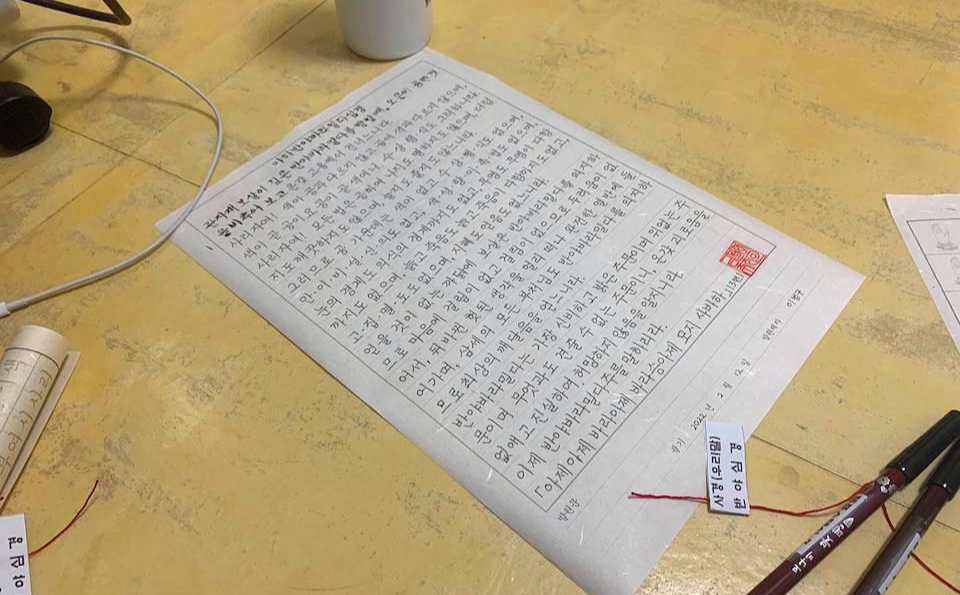 마하반야바라밀다심경
관자재 보살이 깊은 반야바라밀다를 행할 때, 오온이 공한 것
을 비추어 보고 온갖 고통에서 건너느니라
사리자여! 색이 공과 다르지 않고 공이 색과 다르지 않으며,
색이 곧 공이요 공이 곧 색이니, 수 상 행 식도 그러하니라.
사리자여! 모든 법은 공하여 나지도 멸하지도 않으며 더럽
지도 깨끗하지도 않으며 늘지도 줄지도 않느니라.
그러므로 공 가운데는 색이 없고 수 상 행 식도 없으며,
안·이·비·설·신·의도 없고, 색 성 향 미 촉 법도 없으며,
눈의 경계도 의식의 경계까지도 없고, 무명도 무명이 다함
까지도 없으며, 늙고 죽음도 늙고 죽음이 다함까지도 없고,
고 집 멸 도도 없으며, 지혜도 얻음도 없느니라
얻을 것이 없는 까닭에 보살은 반야바라밀다를 의지하
므로 마음에 걸림이 없고 걸림이 없으므로 두려움이 없
어서, 뒤바뀐 헛된 생각을 멀리 떠나 완전한 열반에 들
어가며, 삼세의 모든 부처님도 반야바라밀을 의지하
므로 최상의 깨달음을 얻느니라.
반야바라밀다는 가장 신비하고 밝은 주문이며 위없는 주
문이며 무엇과도 견줄 수 없는 주문이니, 온갖 괴로움을
없애고 진실하여, 허망하지 않음을 알지니라.
이제 반야바라밀다주를 말하리라.
「아제아제 바라아제 바라승아제 모지 사바하」(3번)
발원문
불기 2022 년 2 월 12 일
발원제자
사경(우리말)
반야심경
반야심경